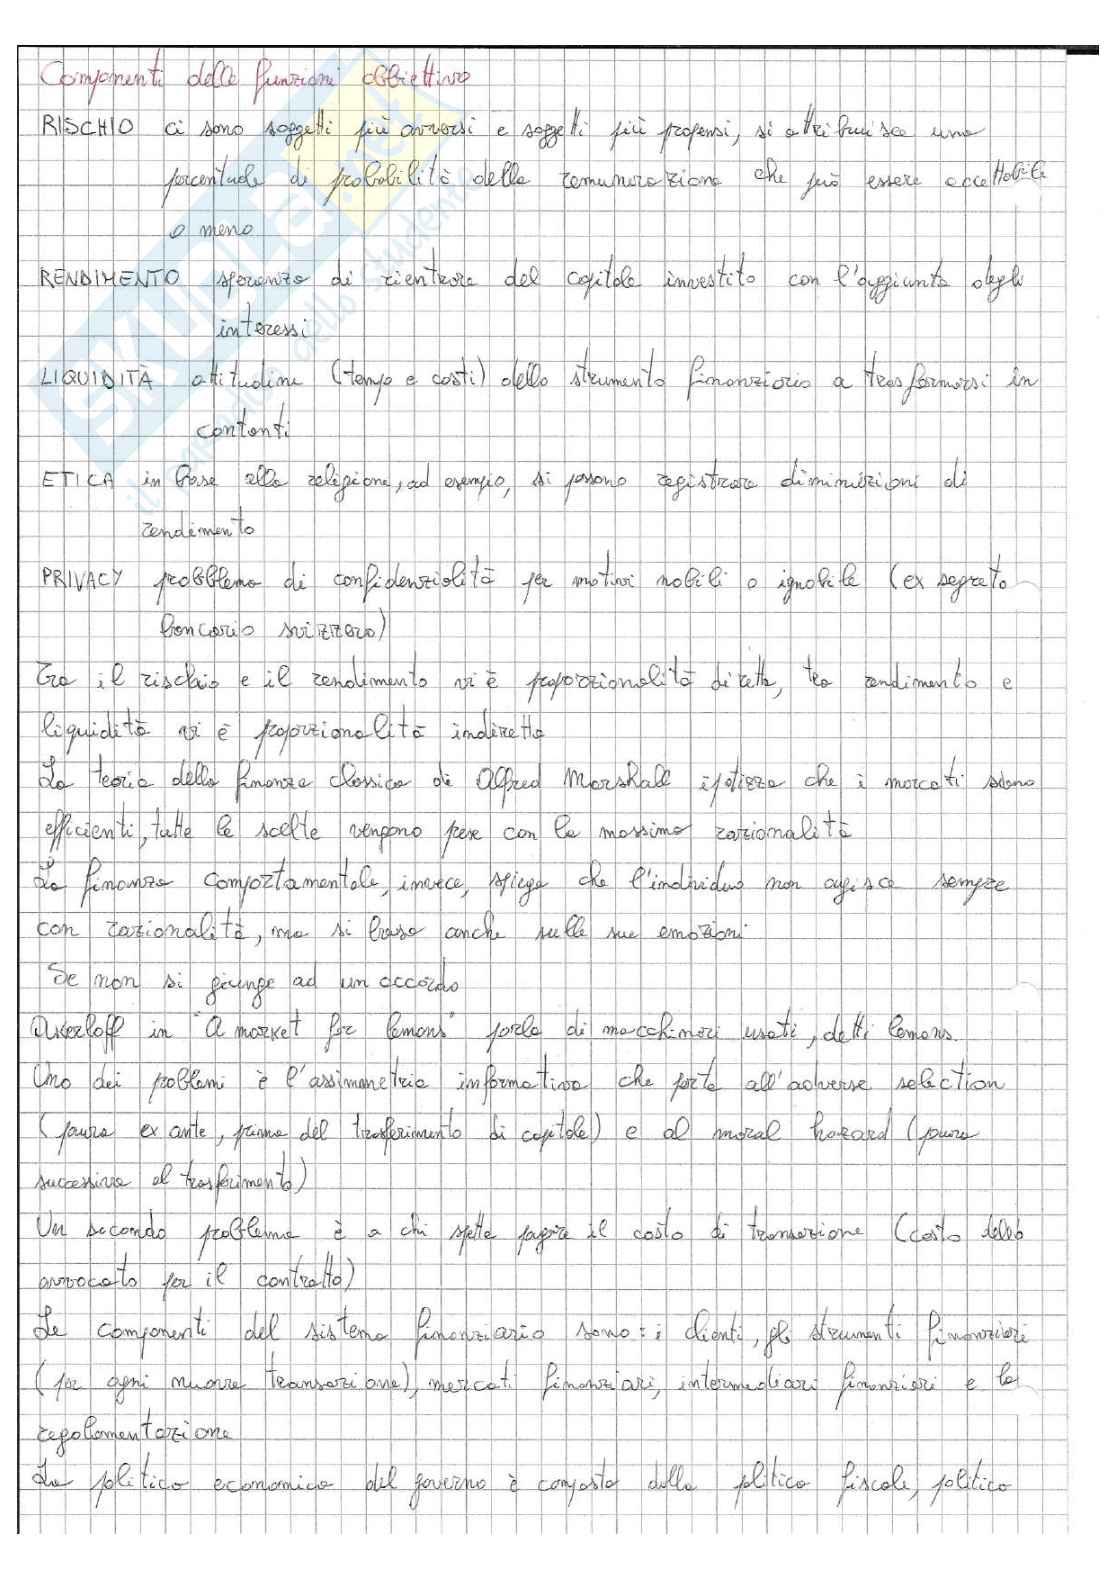 Componenti delle funzioni obbiettivo
RISCHIO ci sono soggetti più avversi e soggetti più propensi, si attribuisce una
percentuale di probabilità della remunerazione che può essere accettabile
o meno
RENDIMENTO speranza di rientrare del capitale investito con l'aggiunta degli
interessi
LIQUIDITÀ attitudine (tempo e costi) dello strumento finanziario a trasformarsi in
contanti
ETICA in base alla religione, ad esempio, si possono registrare diminuzioni di
rendimento
PRIVACY probblema di confidenzialità per motivi nobili o ignobile (ex segreto
bancario svizzero)
Tra il rischio e il rendimento vi è proporzionalità diretta, tra rendimento e
liquidità vi è proporzionalità indiretta
La teoria della finanza classica di Alfred Marshall ipotizza che i mercati siano
efficienti, tutte le scelte vengono prese con la massima razionalità
La finanza comportamentale, invece, spiega che l'individuo non agisce sempre
con razionalità, ma si basa anche sulle sue emozioni
Se non si giunge ad un accordo
Akerloff in "A market for lemons" parla di macchinari usati, detti lemons.
Uno dei problemi è l'assimmetria informativa che porta all'adverse selection
(paura ex ante, prima del trasferimento di capitale) e al moral hazard (paura
successiva al trasferimento)
Un secondo problema è a chi spetta pagare il costo di transazione (costo dello
avvocato per il contratto)
Le componenti del sistema finanziario sono: i clienti, gli strumenti finanziari
(per ogni nuova transazione), mercati finanziari, intermediari finanziari e la
regolamentazione
La politica economica del governo è composta dalla politica fiscale, politica
SKUOLA.net
il paradiso dello studente